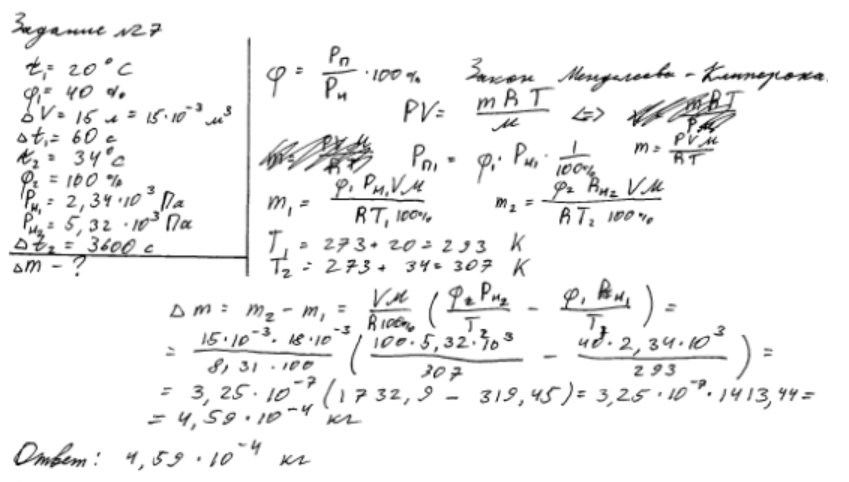 Задание №27
t₁ = 20°C
φ₁ = 40 %
ΔV = 15 л = 15·10⁻³ м³
Δt₁ = 60 с
t₂ = 34°C
φ₂ = 100 %
Pн₁ = 2,34·10³ Па
Pн₂ = 5,32·10³ Па
Δt₂ = 3600 с
Δm - ?
φ = Pп/Pн · 100%
Закон Менделеева - Клапейрона.
PV = mRT/м <=>
m = PVм/RT
Pп₁ = φ₁ · Pн₁ · 1/100%
m₁ = φ₁ Pн₁ V м / RT₁ 100%
m₂ = φ₂ Pн₂ V м / RT₂ 100%
T₁ = 273 + 20 = 293 K
T₂ = 273 + 34 = 307 K
Δm = m₂ - m₁ = Vм/R100% (φ₂ Pн₂/T₂ - φ₁ Pн₁/T₁) =
= 15·10⁻³ · 18·10⁻³ / 8,31 · 100 (100 · 5,32 · 10³ / 307 - 40 · 2,34·10³ / 293) =
= 3,25·10⁻⁷ (1732,9 - 319,45) = 3,25·10⁻⁷ · 1413,44 =
= 4,59·10⁻⁴ кг
Ответ: 4,59 · 10⁻⁴ кг